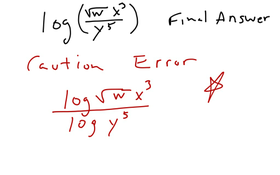 log(√w x³ / y⁵) Final Answer
Caution Error
log √w x³ / log y⁵